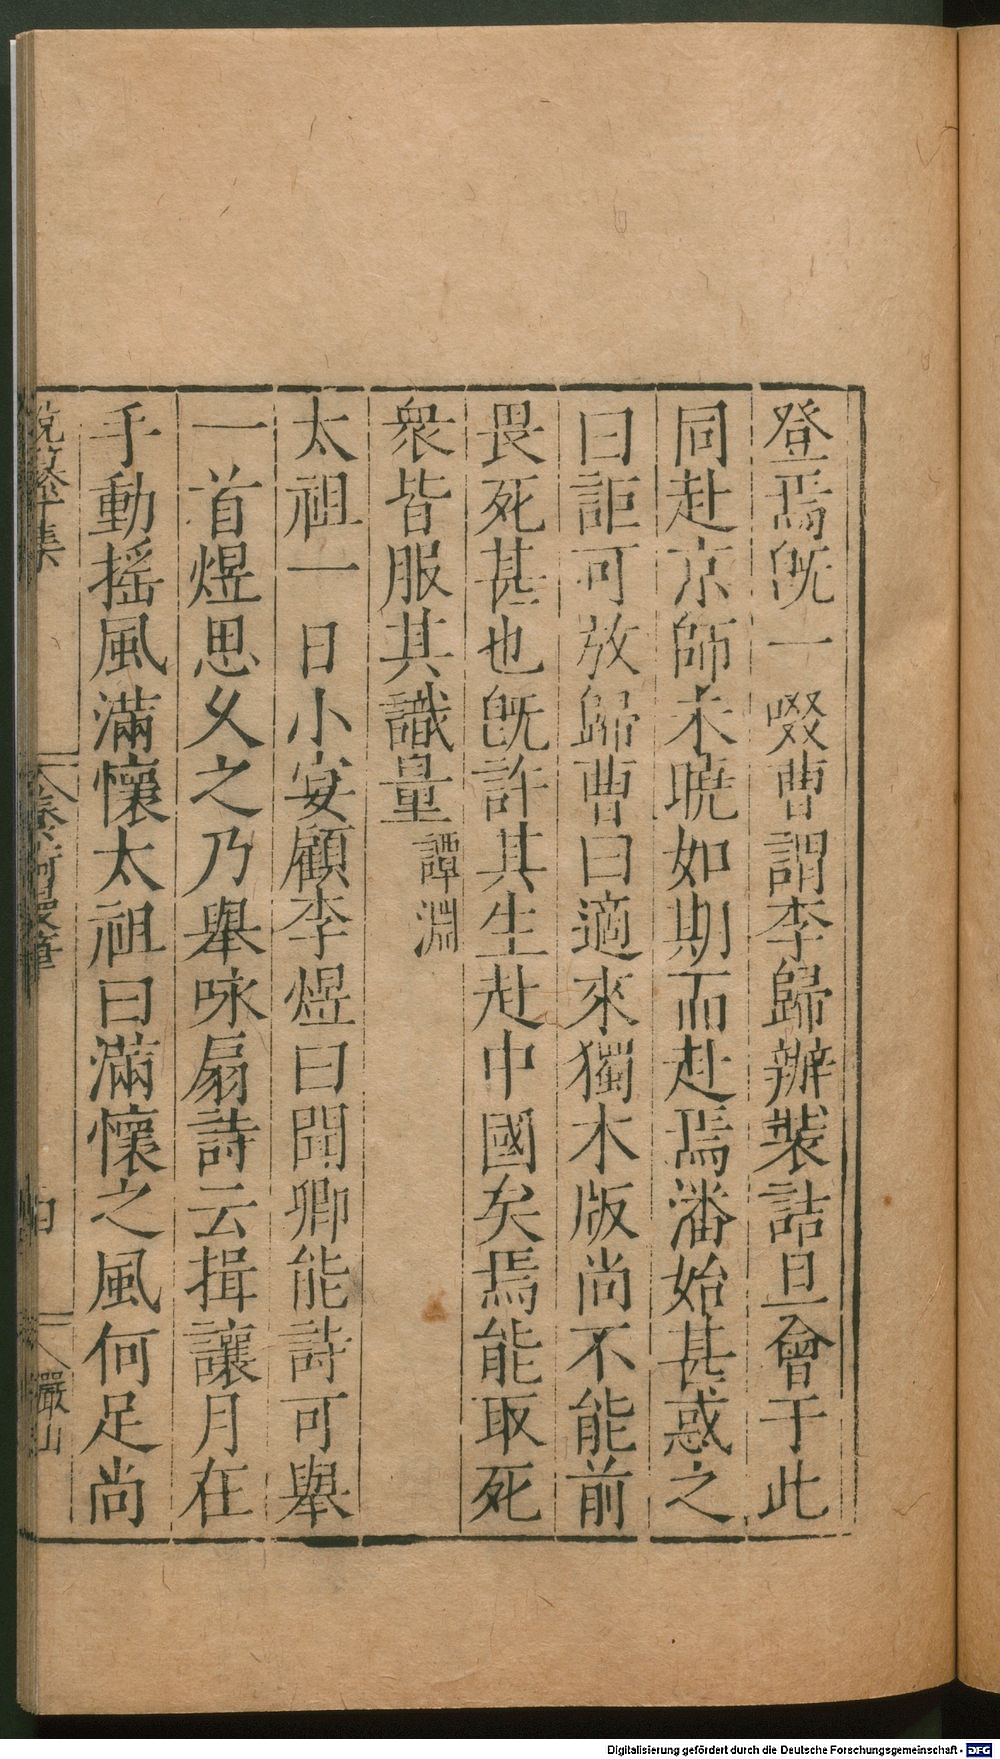 登焉既一啜曹謂李歸辦裝詰旦會于此
同赴京師未曉如期而赴焉潘始甚惑之
曰詎可放歸曹曰適來獨木版尚不能前
畏死甚也既許其生赴中國矣焉能取死
衆皆服其識量譚淵
太祖一日小宴顧李煜曰聞卿能詩可舉
一首煜思乆之乃舉咏扇詩云揖讓月在
手動搖風滿懷太祖曰滿懷之風何足尚
集 筆 巖山
Digitalisierung gefördert durch die Deutsche Forschungsgemeinschaft - DFG